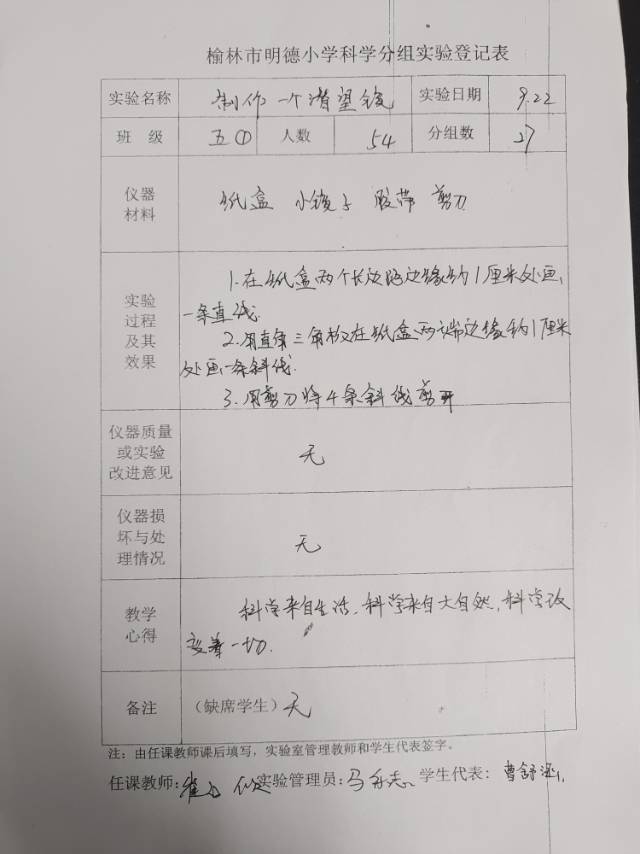 榆林市明德小学科学分组实验登记表
实验名称 制作一个潜望镜 实验日期 9.22
班 级 五① 人数 54 分组数 27
仪器
材料
纸盒 小镜子 胶带 剪刀
实验
过程
及其
效果
1.在纸盒两个长边距边缘约1厘米处画
一条直线.
2.用直角三角板在纸盒两端边缘约1厘米
处画一条斜线.
3.用剪刀将4条斜线剪开
仪器质量
或实验
改进意见
无
仪器损
坏与处
理情况
无
教学
心得
科学来自生活,科学来自大自然,科学改
变着一切.
备注 (缺席学生) 无
注:由任课教师课后填写,实验室管理教师和学生代表签字。
任课教师: 实验管理员: 学生代表: